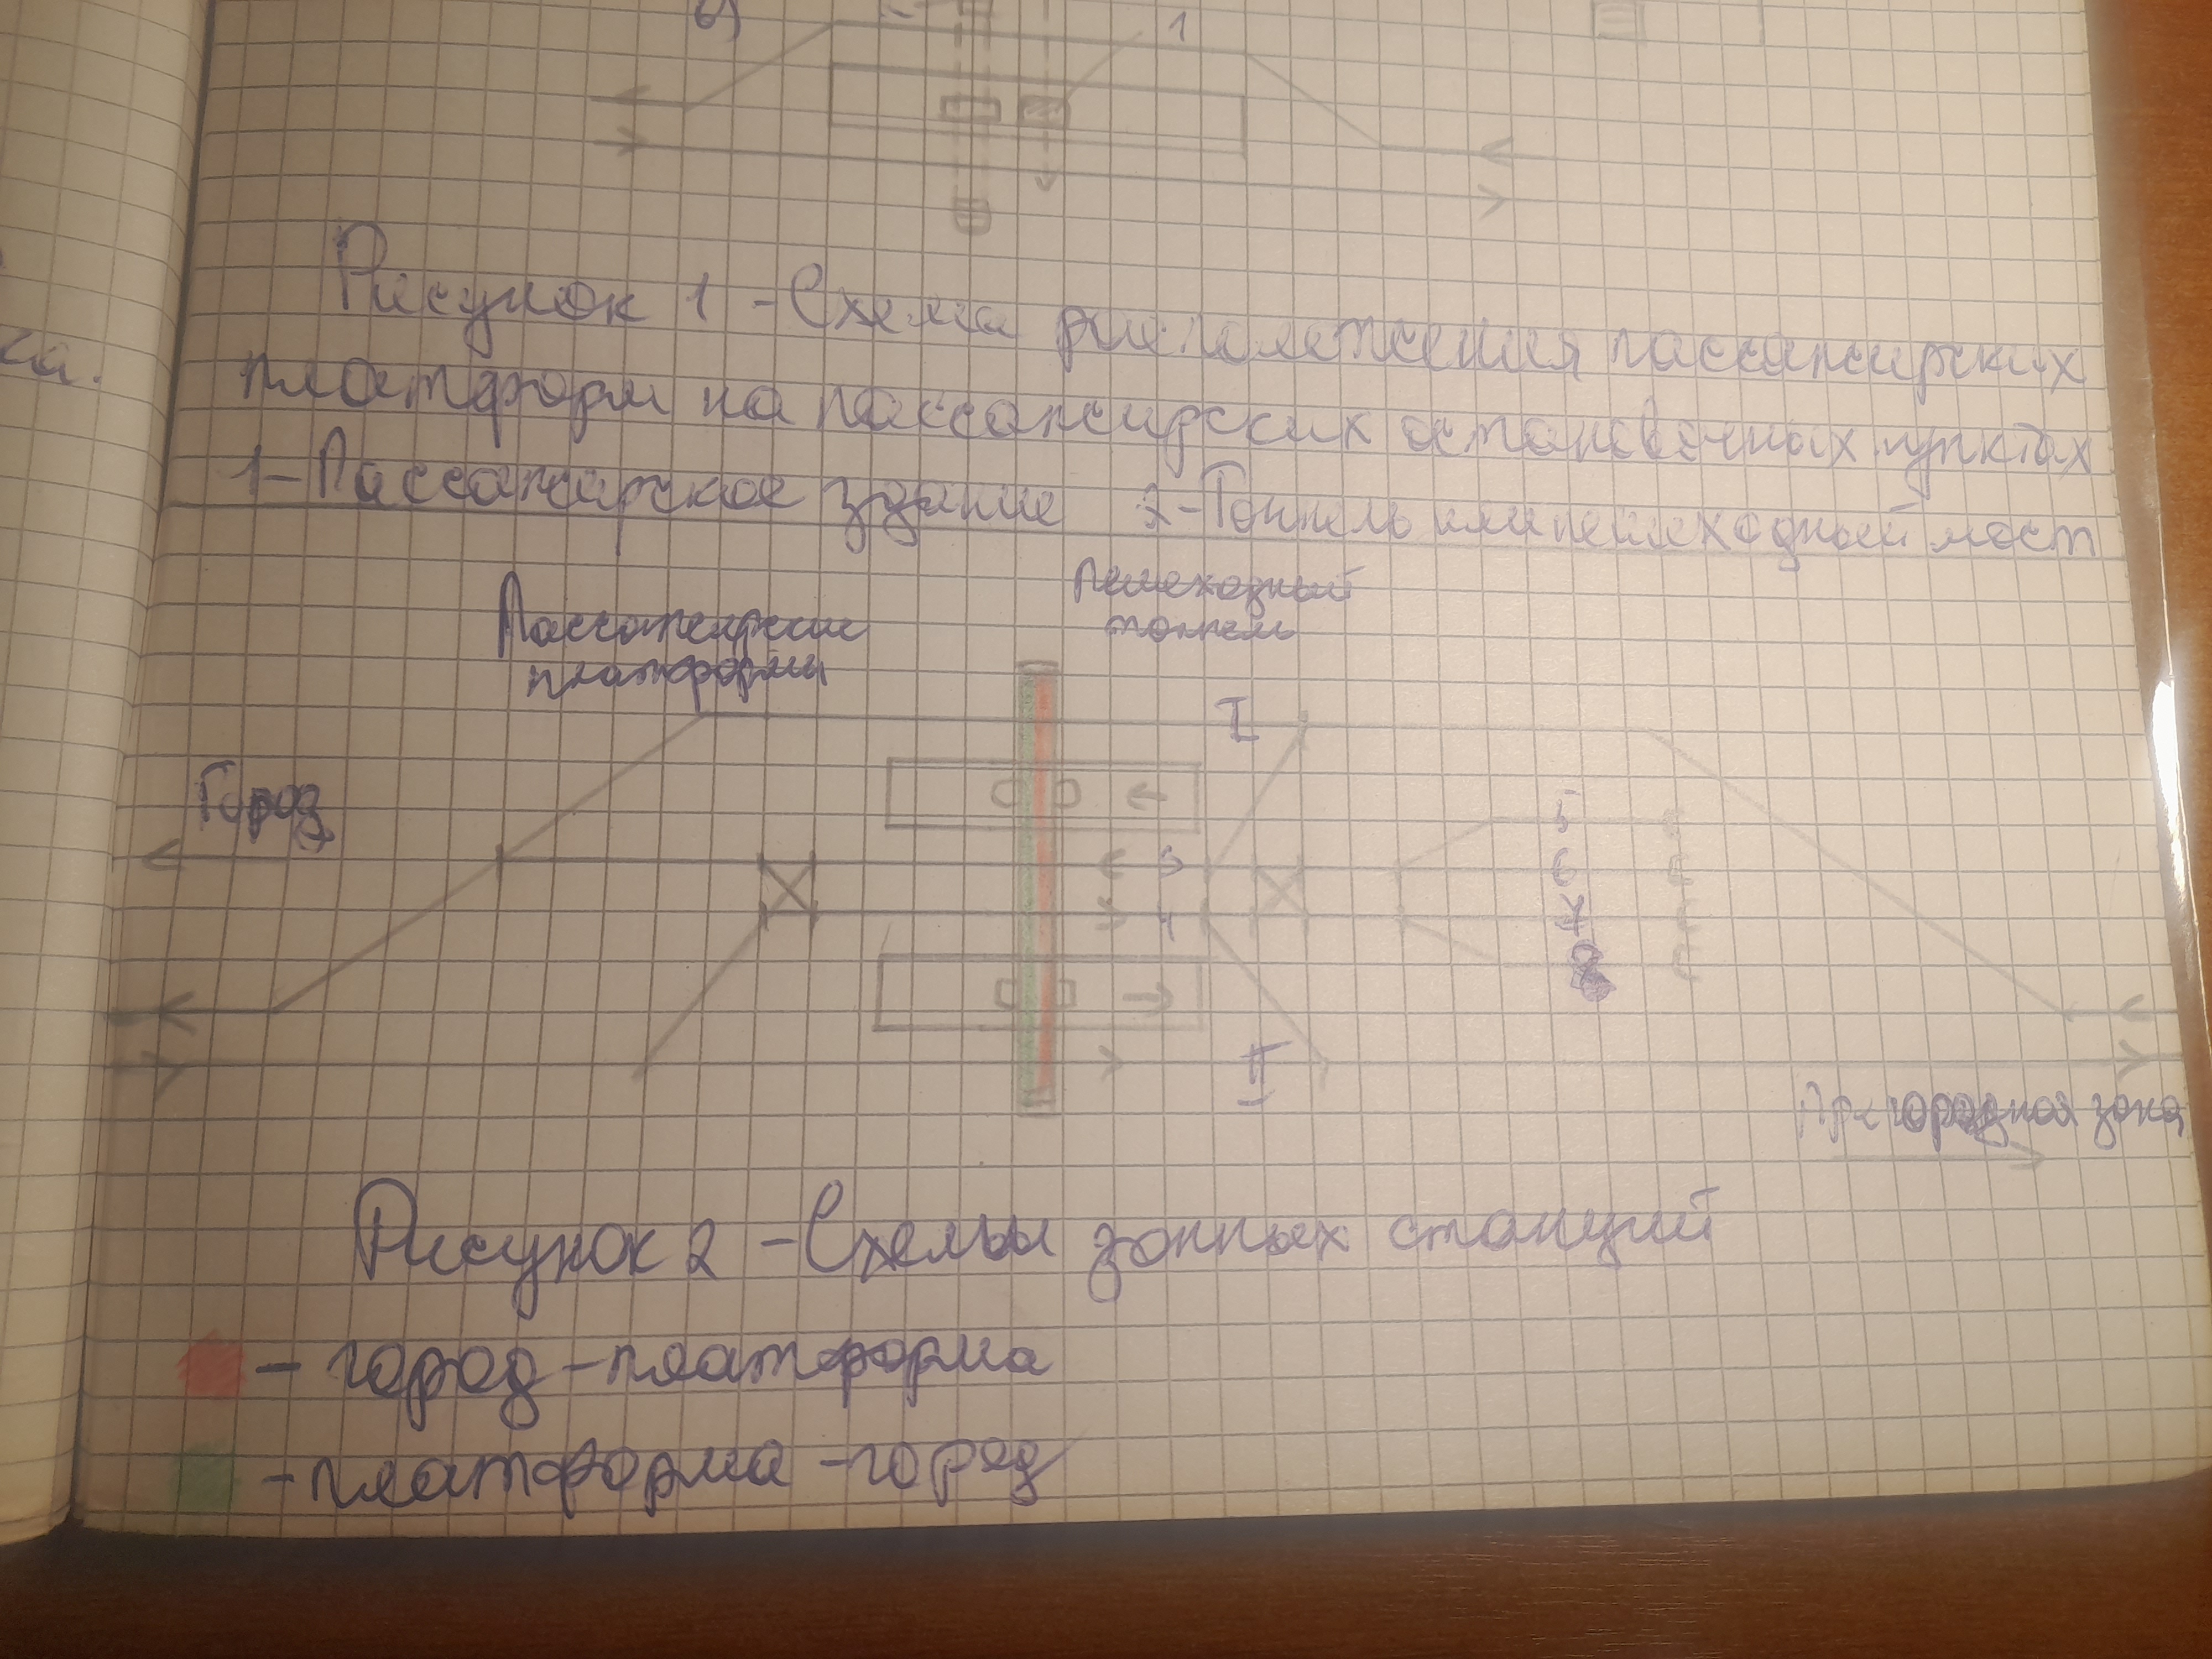 в)
1
са.
Рисунок 1 - Схема расположения пассажирских
платформ на пассажирских остановочных пунктах
1- Пассажирское здание 2- Тоннель или пешеходный мост
Пассажирские
платформы
Пешеходный
тоннель
I
Город
5
3
6
4
7
8
II
Пригородная зона
Рисунок 2 - Схемы зонных станций
- город - платформа
- платформа - город